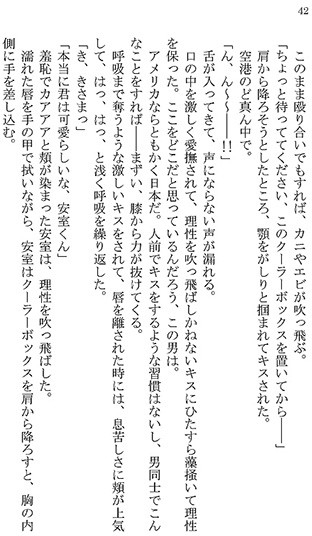 42
このまま殴り合いでもすれば、カニやエビが吹っ飛ぶ。
「ちょっと待っててください、このクーラーボックスを置いてから――」
肩から降ろそうとしたところ、顎をがしりと掴まれてキスされた。
空港のど真ん中で。
「ん、ん～～――!!」
舌が入ってきて、声にならない声が漏れる。
口の中を激しく愛撫されて、理性を吹っ飛ばしかねないキスにひたすら藻掻いて理性
を保った。ここをどこだと思っているんだろう、この男は。
アメリカならともかく日本だ。人前でキスをするような習慣はないし、男同士でこん
なことをすれば――まずい、膝から力が抜けてくる。
呼吸まで奪うような激しいキスをされて、唇を離された時には、息苦しさに頬が上気
して、はっ、はっ、と浅く呼吸を繰り返した。
「本当に君は可愛らしいな、安室くん」
「き、きさまっ」
羞恥でカアアアと頬が染まった安室は、理性を吹っ飛ばした。
濡れた唇を手の甲で拭いながら、安室はクーラーボックスを肩から降ろすと、胸の内
側に手を差し込む。